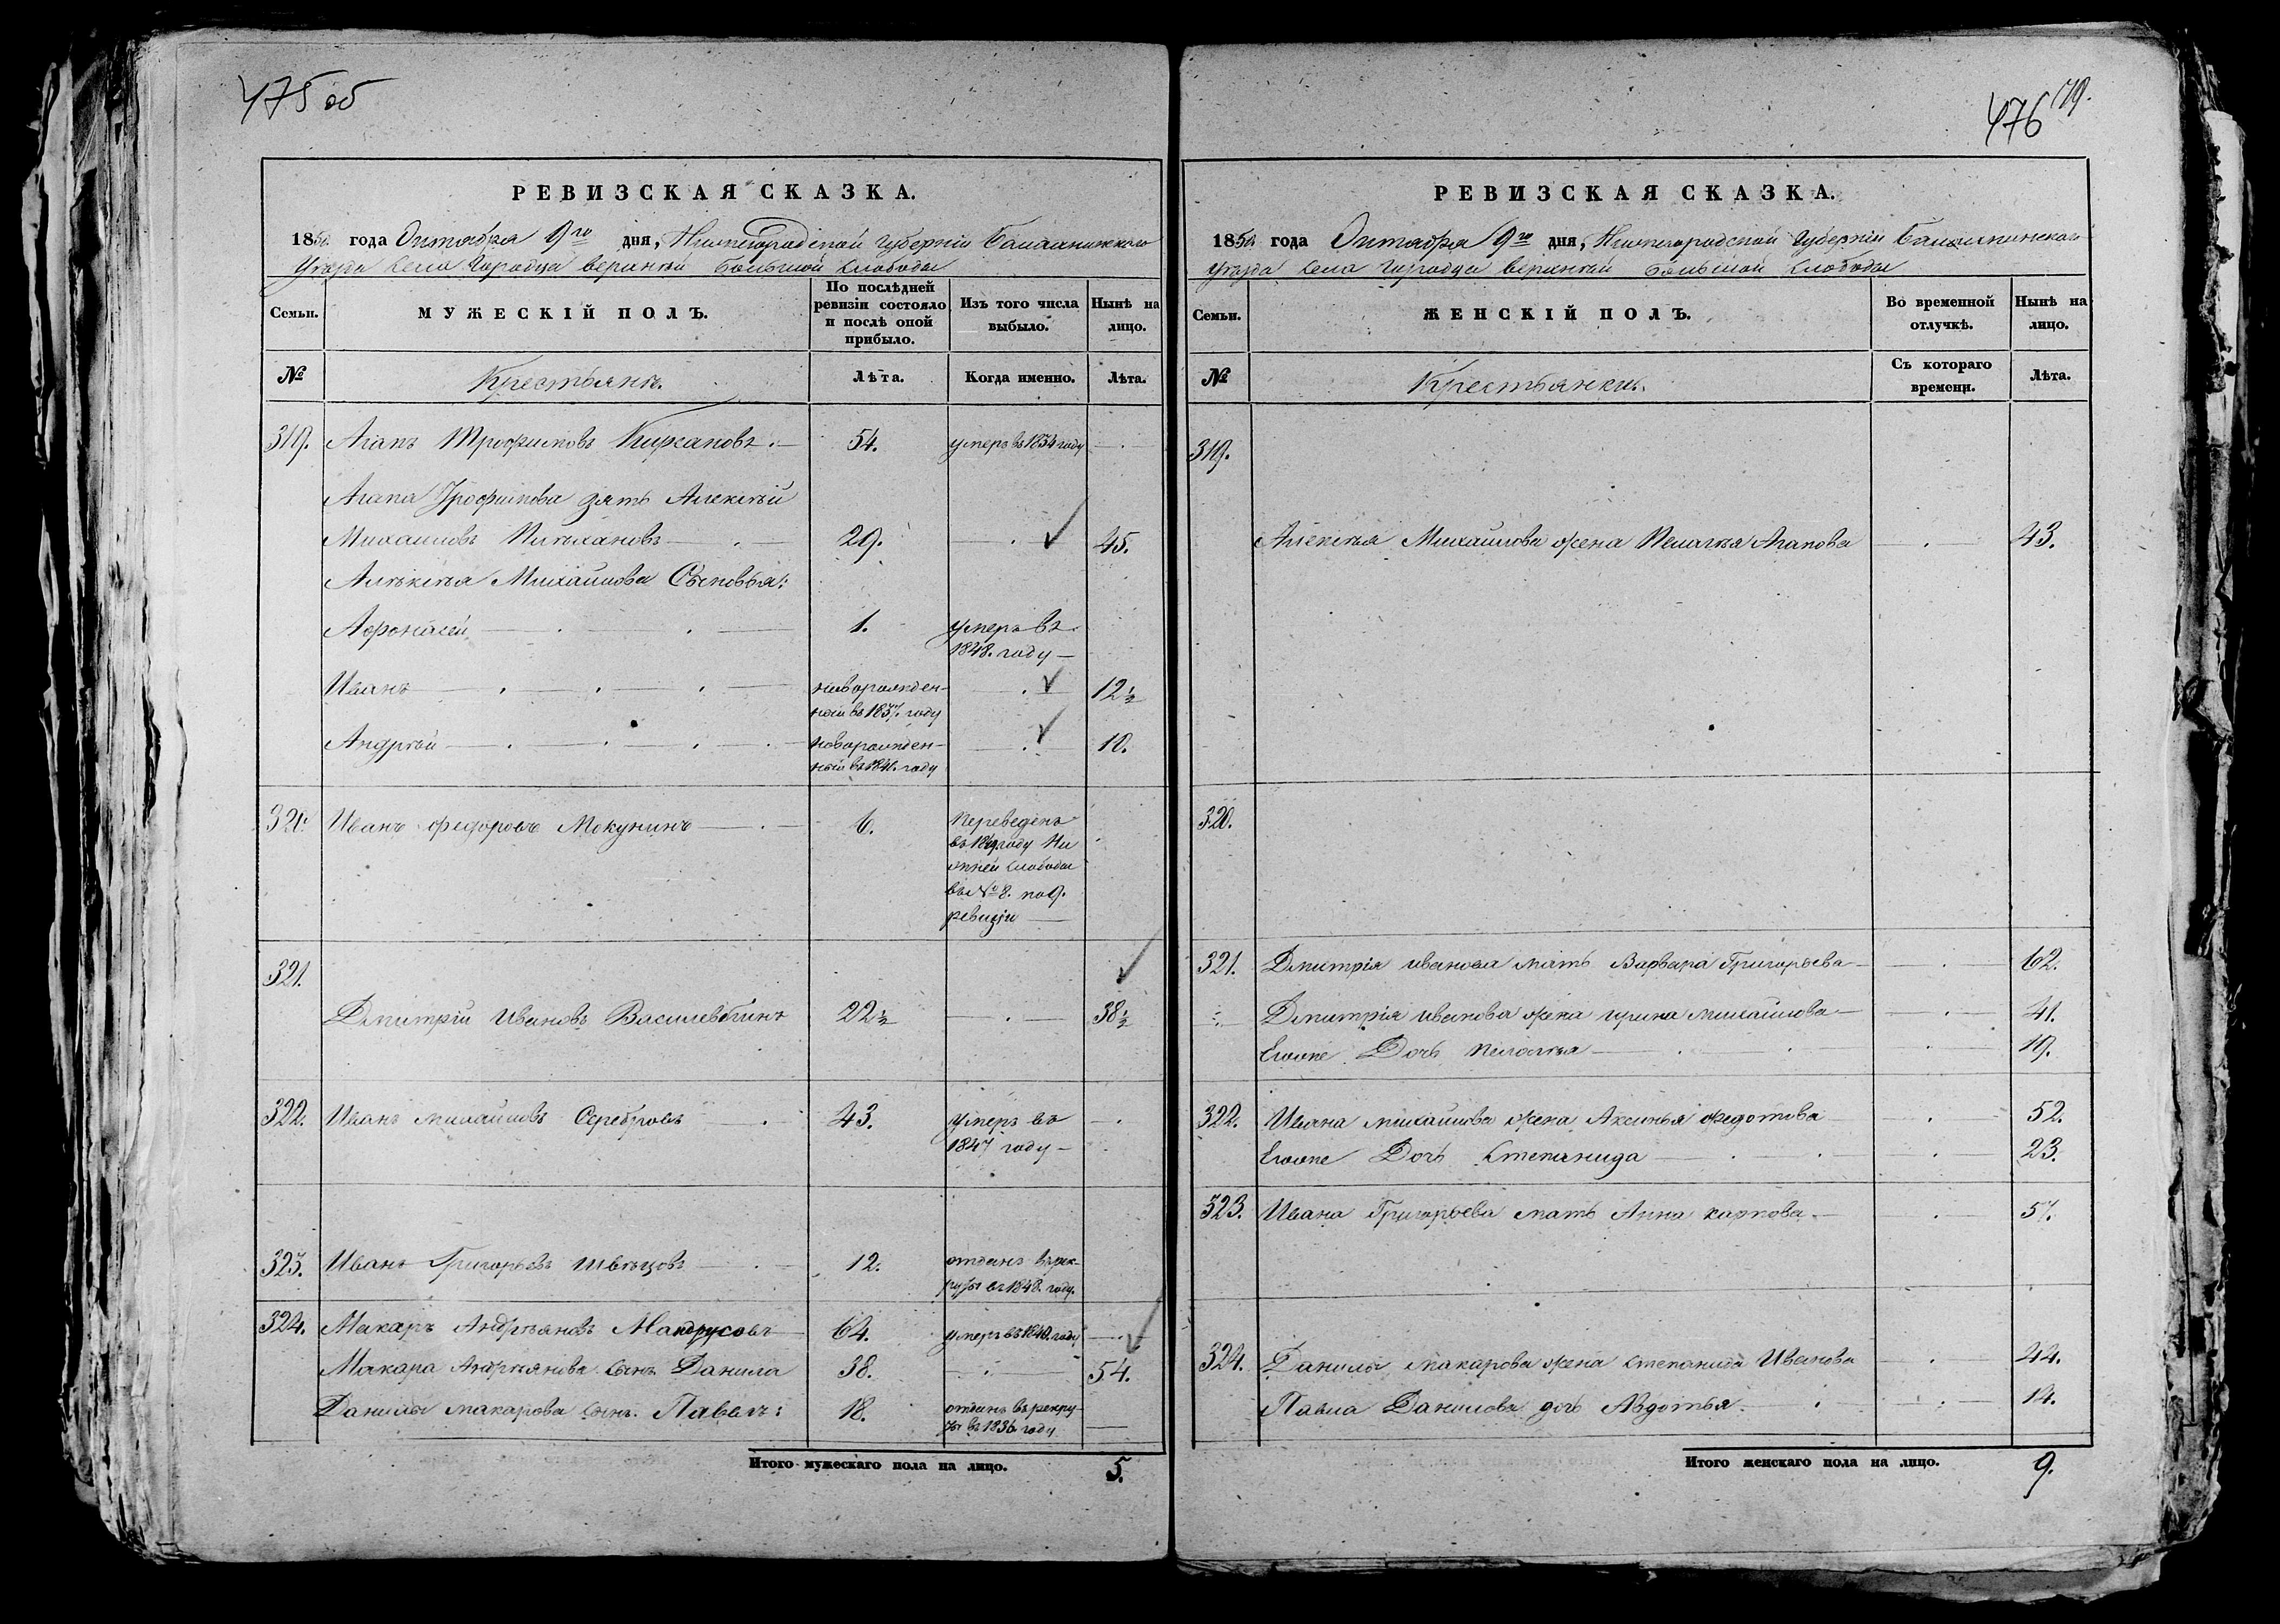 475 об
РЕВИЗСКАЯ СКАЗКА.
1850 года Октября 9го дня, Нижегородской губерніи Балахнинскаго
уезда села Городца верхней большой слободы
Семьи. МУЖЕСКІЙ ПОЛЪ. По послѣдней ревизіи состояло и послѣ оной прибыло. Изъ того числа выбыло. Нынѣ на лицо.
№ Крестьяне. Лѣта. Когда именно. Лѣта.
319. Агапъ Трофимовъ 54. умеръ въ 1834 году
Агапа Трофимова зять Алексѣй
Михайловъ 29. 45.
Алѣксѣя Михайлова Сыновья:
Афонасей 1. умеръ въ
1848. году
Иванъ новорожден- 12½
ный въ 1837. году
Андрѣй новорожден- 10.
ный въ 1840. году
320. Иванъ Федоровъ Мокунинъ 6. Переведенъ
въ году Ни
жней слободы
въ № 8. по 9.
ревизіи
321.
Дмитрій Ивановъ Васильевъ 22½ 38½
322. Иванъ Михайловъ Серебровъ 43. умеръ въ
1847 году
323. Иванъ Григорьевъ Швѣцовъ 12. отданъ въ рек-
руты въ 1848. году.
324. Макаръ Андрѣяновъ Мандрусовъ 64. умеръ въ 1840. году
Макара Андрѣянова сынъ Данила 38. 54.
Данилы Макарова сынъ. Павелъ: 18. отданъ въ рекру-
ты въ 1836 году
Итого мужескаго пола на лицо. 5.
476 79.
РЕВИЗСКАЯ СКАЗКА.
1850 года Октября 9го дня, Нижегородской губерніи Балахнинскаго
уезда села Городца верхней большой слободы
Семьи. ЖЕНСКІЙ ПОЛЪ. Во временной отлучкѣ. Нынѣ на лицо.
№ Крестьянки. Съ котораго времени. Лѣта.
319.
Алексѣя Михайлова жена Пелагѣя Агапова 43.
320.
321. Дмитрія Иванова мать Варвара Григорьева 62.
Дмитрія Иванова жена Ирина Михайлова 41.
Егоже Дочь Пелагѣя 19.
322. Ивана Михайлова жена Аксинья Федотова 52.
Егоже Дочь Степанида 23.
323. Ивана Григорьева мать Анна Карпова 57.
324. Данилы Макарова жена Степанида Иванова 44.
Павла Данилова дочь Авдотья 14.
Итого женскаго пола на лицо. 9.